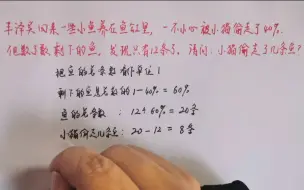 买回来一些小鱼养在鱼缸里，一不小心被小猫偷走了40%.
但数了数剩下的鱼，发现只有12条了。请问：小猫偷走了几条鱼？
把鱼的总条数看作单位1
剩下的鱼是总数的1-40%=60%
鱼的总条数：12÷60%=20条
小猫偷走几条鱼：20-12=8条